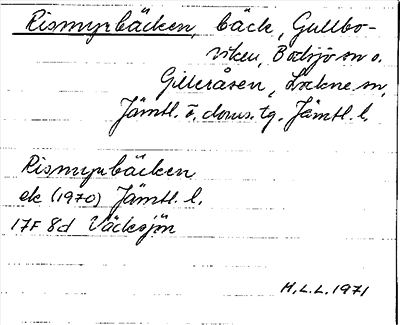 Rismyrbäcken, bäck, Gullbo-
viken, Bodsjö sn o.
Gilleråsen, Lockne sn,
Jämtl. ö. doms. tg. Jämtl. l.
Rismyrbäcken
ek (1970) Jämtl. l.
17F 8d Väcksjön
H.L.L. 1971